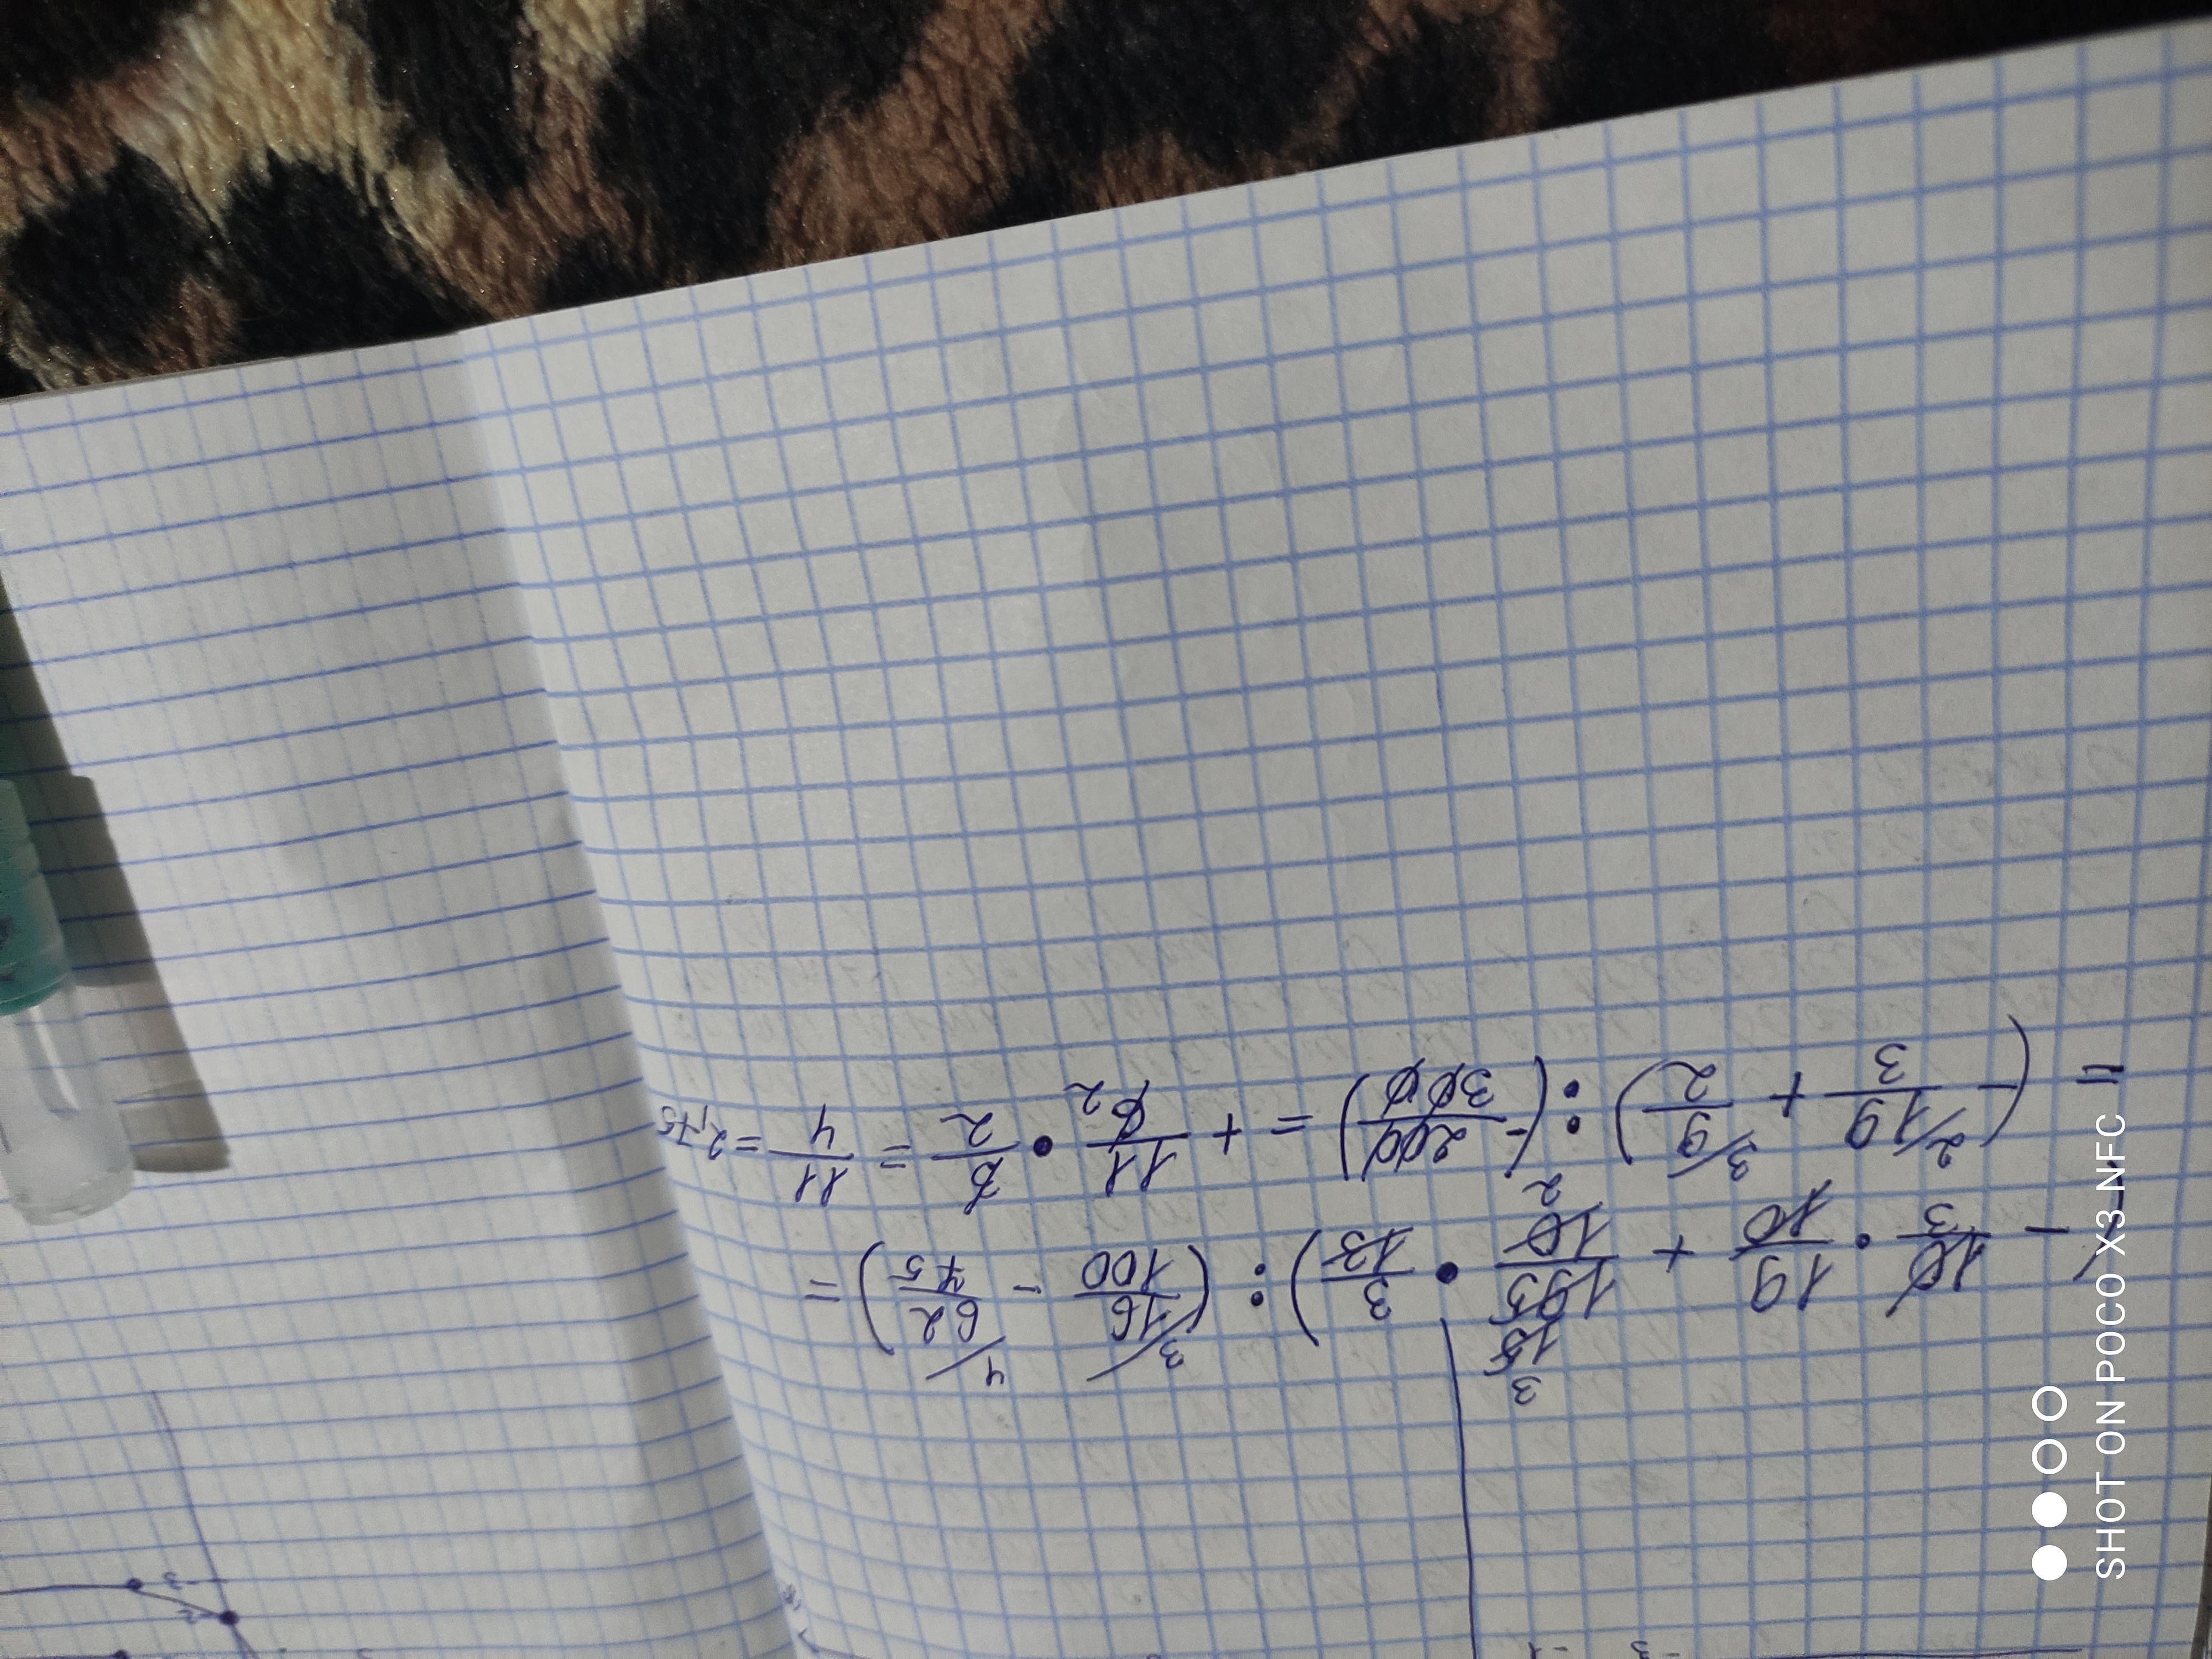 (- 10/3 · 19/10 + 195/10 · 3/13) : (16/100 - 62/75) =
= (- 19/3 + 9/2) : (- 200/300) = + 11/6 · 3/2 = 11/4 = 2,75
SHOT ON POCO X3 NFC